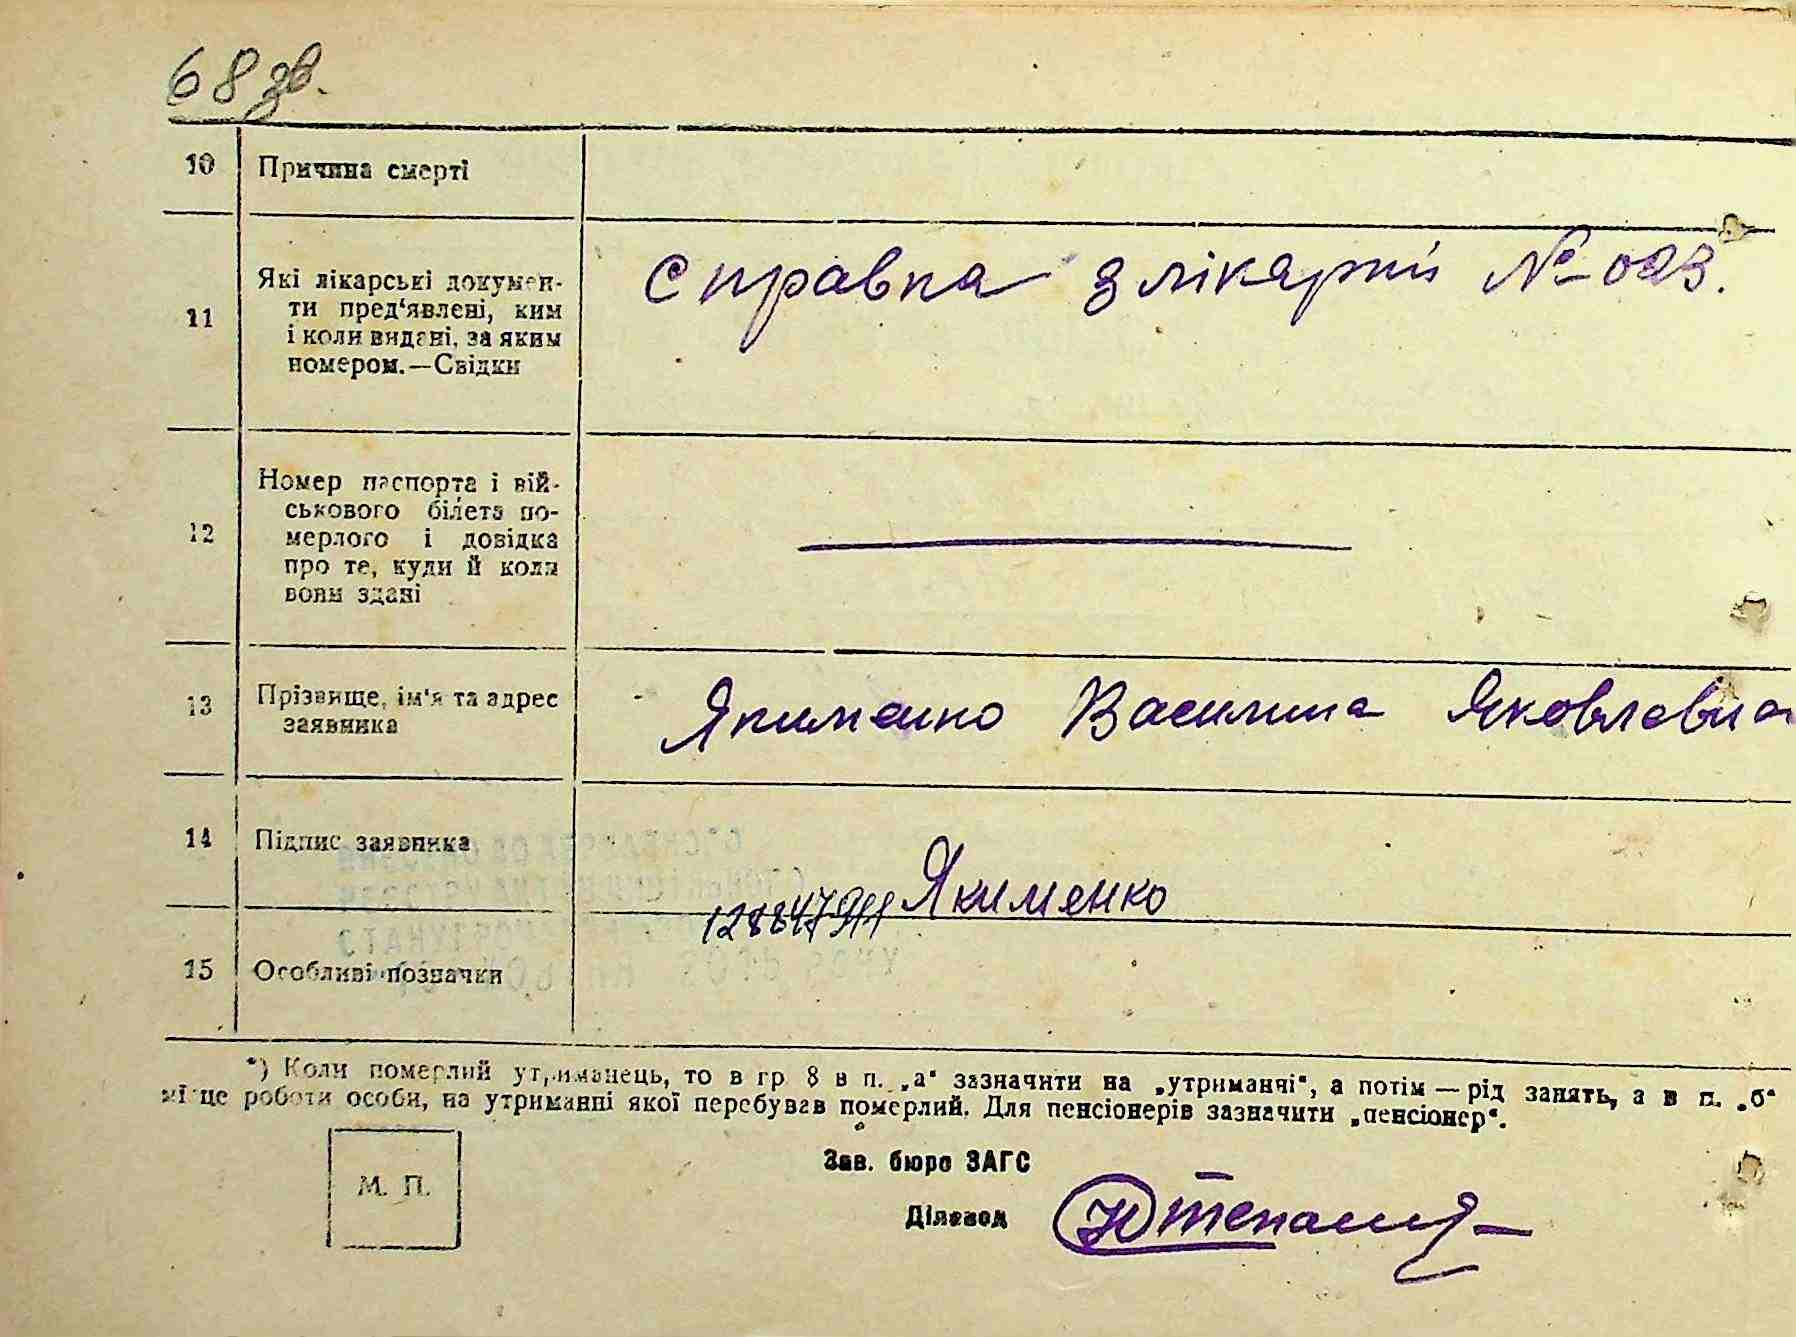 68 зв.
10 Причина смерті
11 Які лікарські докумен-
ти пред‘явлені, ким
і коли видані, за яким
номером.—Свідки
Справка з лікарні № 023.
12 Номер паспорта і вій-
ськового білета по-
мерлого і довідка
про те, куди й коли
вони здані
13 Прізвище, ім‘я та адрес
заявника
Якименко Василина Яковлевна
14 Підпис заявника
Якименко
15 Особливі позначки
*) Коли померлий утриманець, то в гр 8 в п. „а“ зазначити на „утриманчі“, а потім — рід занять, а в п. „б“
місце роботи особи, на утриманні якої перебував померлий. Для пенсіонерів зазначити „пенсіонер“.
М. П.
Зав. бюро ЗАГС
Діловод